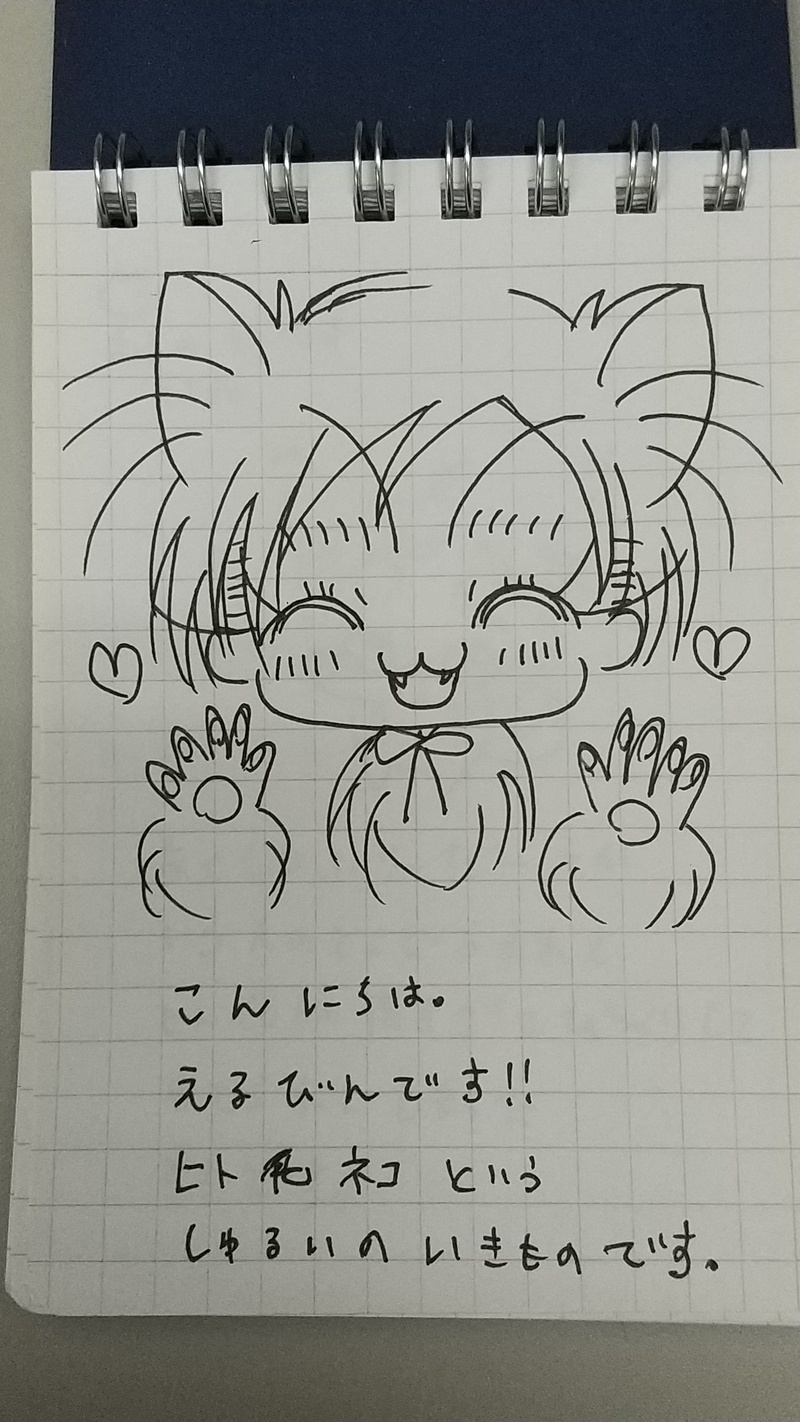 こんにちは。
えるびんです!!
ヒト化ネコという
しゅるいのいきものです。